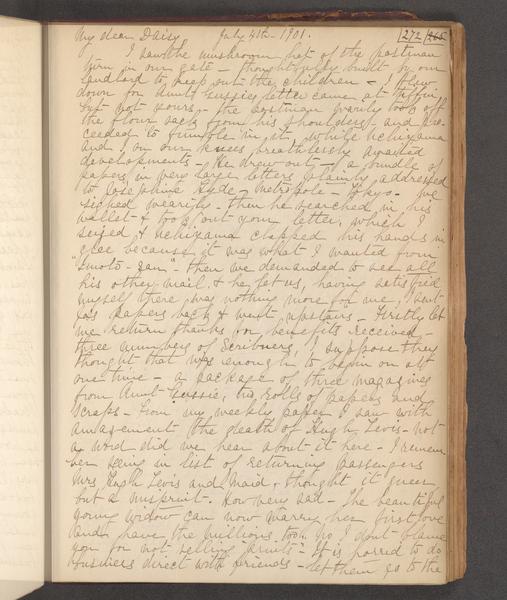 My dear Daisy July 4th - 1901. 272 265
I saw the mushroom hat of the postman
turn in our gate - thoughtfully built by our
landlord to keep out the children - I flew
down for Aunt Gussie's letter came at tiffin
but not yours, - the postman wearily took off
the flour sack from his shoulders and pro-
ceeded to fumble in it, while Uchiyama
and I on our knees breathlessly awaited
developments - He drew out - a bundle of
papers in very large letters plainly addressed
to Josephine Hyde - Metropole - Tokyo - we
sighed wearily - then he searched in his
wallet & took out your letter, which I
seized & Uchiyama clapped his hands in
glee because it was what I wanted from
then we demanded to see all
his other mail & he let us, having satisfied
myself there was nothing more for me, I sent
papers back & went upstairs - Firstly let
me return thanks for benefits received -
three numbers of Scribners, I suppose they
thought that was enough to begin on all
one time - a package of three magazines
from Aunt Gussie, two rolls of papers and
scraps - From my weekly paper I saw with
amazement the death of Hugh Levis - not
a word did we hear about it here - I remem
ber seeing in list of returning passengers
Mrs Hugh Levis and Maid & thought it queer
but a misprint. How very sad - The beautiful
young widow can now marry her first love
and have the millions too. No I don't blame
you for not selling prints - It is horrid to do
business direct with friends - let them go to the